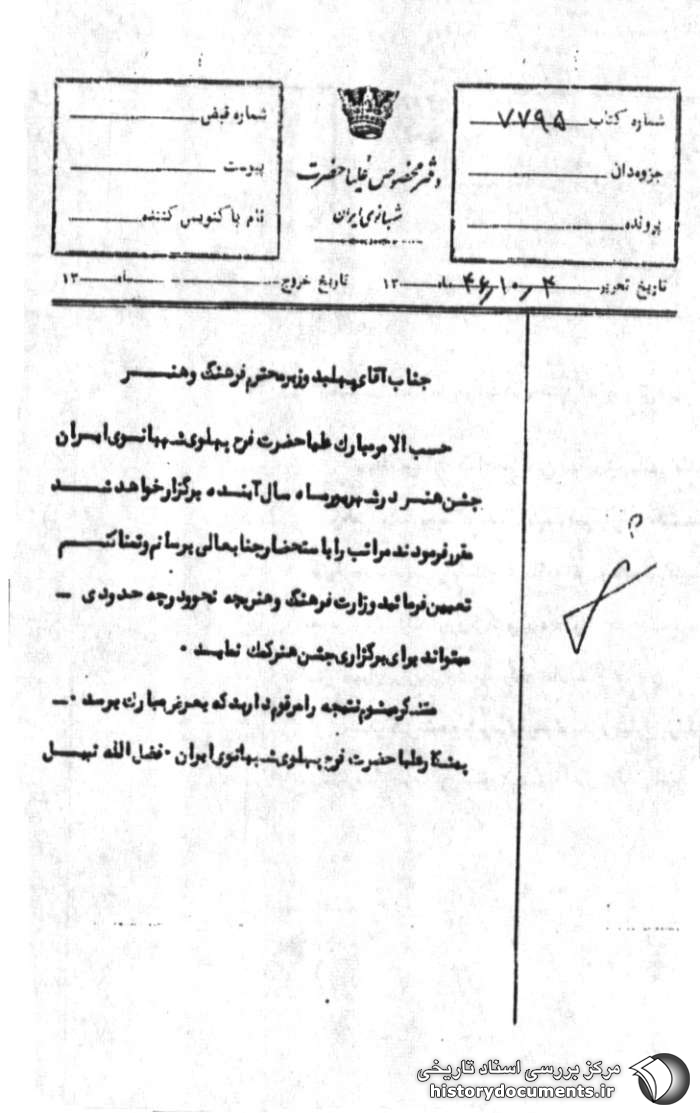 شماره کتاب ۷۷۹۵
جزوه‌دان
پرونده
دفتر مخصوص علیاحضرت
شهبانوی ایران
شماره قبض
پیوست
نام پاکنویس کننده
تاریخ تحریر ۴۶٫۱۰٫۴ ماه ۱۳
تاریخ خروج ماه ۱۳
جناب آقای پهلبد وزیر محترم فرهنگ و هنر
حسب الامر مبارک علیاحضرت فرح پهلوی شهبانوی ایران
جشن هنر در شهریورماه سال آینده برگزار خواهد شد
مقرر فرمودند مراتب را باستحضار جنابعالی برسانم و تمنا کنم
تعیین فرمائید وزارت فرهنگ و هنر چه نحو و درچه حدودی ـ
میتواند برای برگزاری جشن هنر کمک نماید ۰
متشکر میشوم نتیجه را مرقوم دارید که بعرض مبارک برسد ۰ ـ
پیشکار علیاحضرت فرح پهلوی شهبانوی ایران ۰ فضل الله نبیل
مرکز بررسی اسناد تاریخی
historydocuments.ir